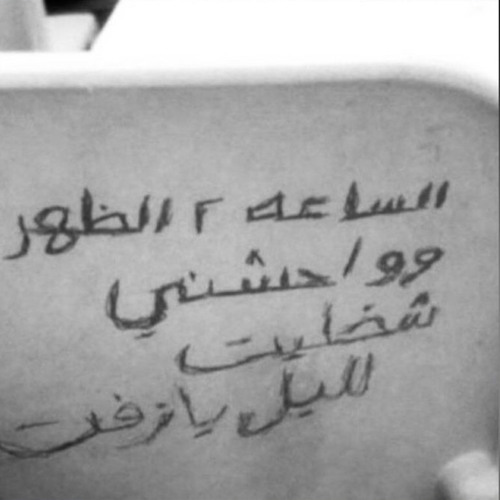 الساعه ٢ الظهر
وواحشني
شخابيت
لليل يازفت